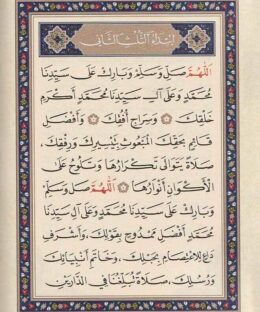 ابتداء الثلث الثاني
اَللّٰهُمَّ صَلِّ وَسَلِّمْ وَبَارِكْ عَلَى سَيِّدِنَا
مُحَمَّدٍ وَعَلَى آلِ سَيِّدِنَا مُحَمَّدٍ أَكْرَمِ
خَلْقِكَ ۞ وَسِرَاجِ أُفُقِكَ ۞ وَأَفْضَلِ
قَائِمٍ بِحَقِّكَ الْمَبْعُوثِ بِتَيْسِيرِكَ وَرِفْقِكَ،
صَلَاةً يَتَوَالَى تَكْرَارُهَا وَتَلُوحُ عَلَى
الْأَكْوَانِ أَنْوَارُهَا ۞ اَللّٰهُمَّ صَلِّ وَسَلِّمْ
وَبَارِكْ عَلَى سَيِّدِنَا مُحَمَّدٍ وَعَلَى آلِ سَيِّدِنَا
مُحَمَّدٍ أَفْضَلِ مَمْدُوحٍ بِقَوْلِكَ، وَأَشْرَفِ
دَاعٍ لِلْاِعْتِصَامِ بِحَبْلِكَ، وَخَاتَمِ أَنْبِيَائِكَ
وَرُسُلِكَ، صَلَاةً تُبَلِّغُنَا فِي الدَّارَيْنِ